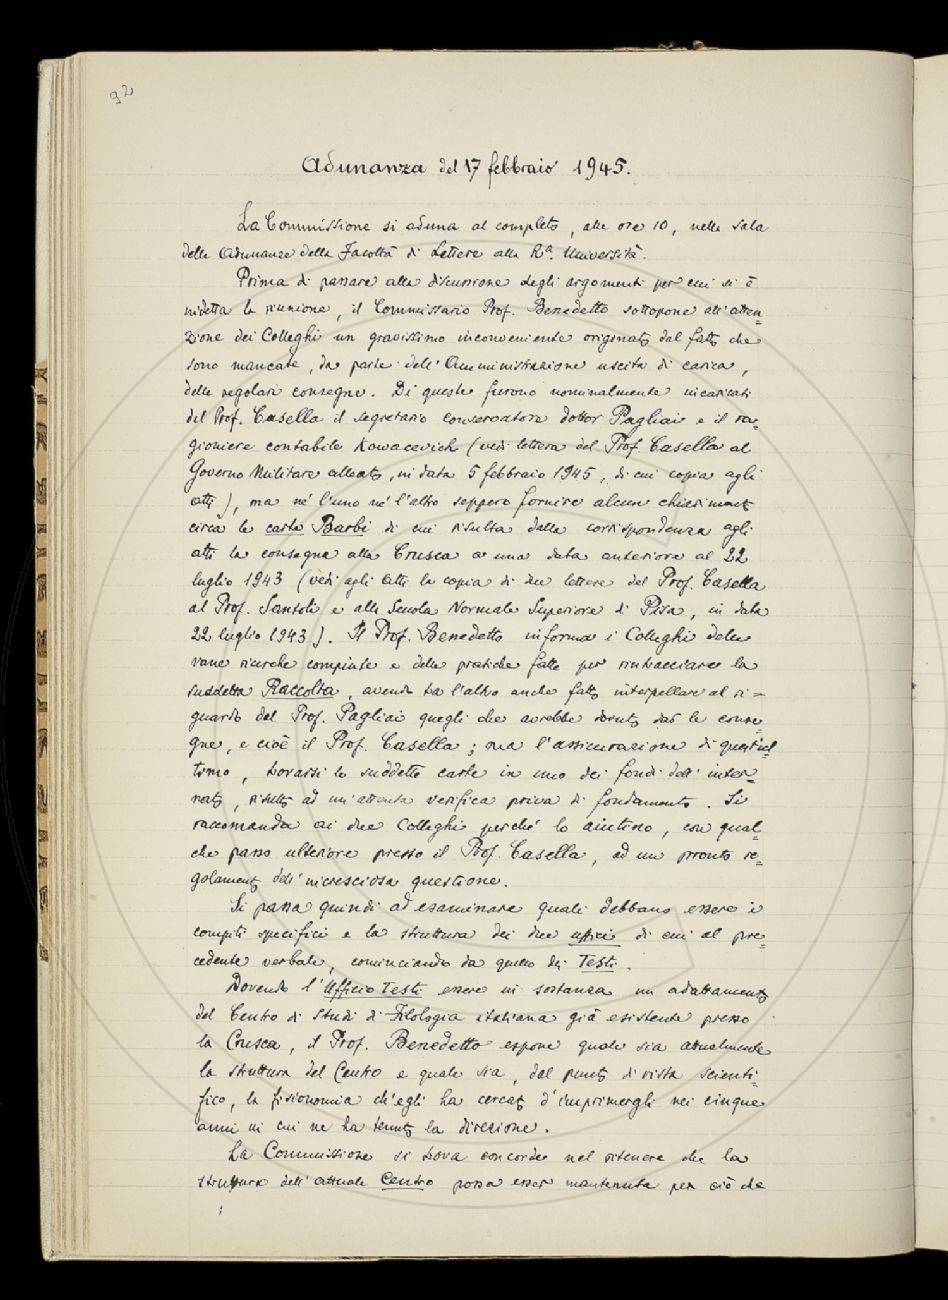 92
Adunanza del 17 febbraio 1945.
La Commissione si aduna al completo, alle ore 10, nella Sala
delle Adunanze della Facoltà di Lettere alla Rª. Università.
Prima di passare alla discussione degli argomenti per cui si è
indetta la riunione, il Commissario Prof. Benedetto sottopone all'atten=
zione dei Colleghi un gravissimo inconveniente originato dal fatto che
sono mancate, da parte dell'Amministrazione uscita di carica,
delle regolari consegne. Di queste furono nominalmente incaricati
dal Prof. Casella il segretario conservatore dottor Pagliai e il ra=
gioniere contabile Kovacevich (vedi lettera del Prof. Casella al
Governo Militare alleato, in data 5 febbraio 1945, di cui copia agli
atti), ma né l'uno né l'altro seppero fornire alcun chiarimento
circa le carte Barbi di cui risulta dalla corrispondenza agli
atti la consegna alla Crusca a una data anteriore al 22
luglio 1943 (vedi agli atti la copia di due lettere del Prof. Casella
al Prof. Santoli e alla Scuola Normale Superiore di Pisa, in data
22 luglio 1943). Il Prof. Benedetto informa i Colleghi delle
vane ricerche compiute e delle pratiche fatte per rintracciare la
suddetta Raccolta, avendo tra l'altro anche fatto interpellare al ri=
guardo dal Prof. Pagliai quegli che avrebbe dovuto dar le conse=
gne, e cioè il Prof. Casella; ma l'assicurazione di quest'ul=
timo, trovarsi le suddette carte in uno dei fondi dell'inter=
nato, risultò ad un'attenta verifica priva di fondamento. Si
raccomanda ai due Colleghi perché lo aiutino, con qual=
che passo ulteriore presso il Prof. Casella, ad un pronto re=
golamento dell'incresciosa questione.
Si passa quindi ad esaminare quali debbano essere i
compiti specifici e la struttura dei due uffici di cui al pre=
cedente verbale, cominciando da quello dei Testi.
Dovendo l'Ufficio Testi essere in sostanza un adattamento
del Centro di Studi di Filologia italiana già esistente presso
la Crusca, il Prof. Benedetto espone quale sia attualmente
la struttura del Centro e quale sia, dal punto di vista scienti=
fico, la fisionomia ch'egli ha cercato d'imprimergli nei cinque
anni in cui ne ha tenuto la direzione.
La Commissione si trova concorde nel ritenere che la
struttura dell'attuale Centro possa esser mantenuta per ciò che